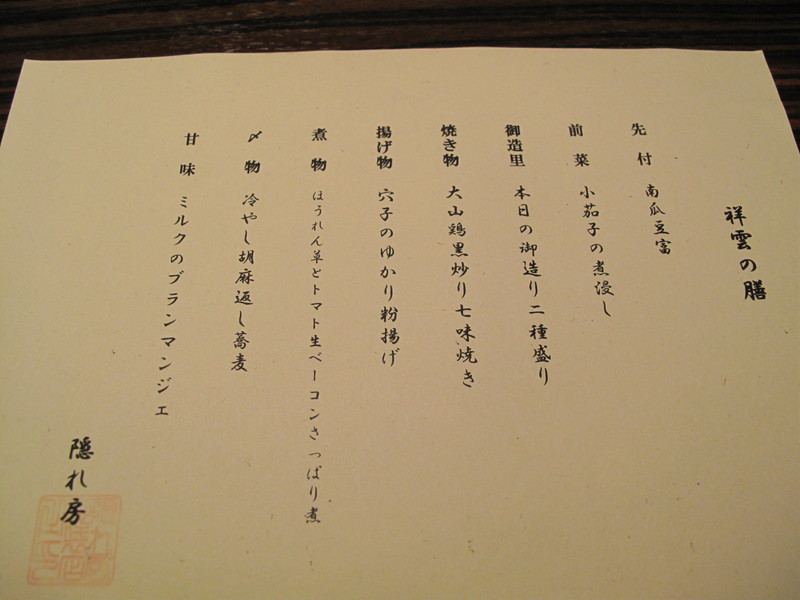 祥雲の膳
先付 南瓜豆富
前菜 小茄子の煮浸し
御造里 本日の御造り二種盛り
焼き物 大山鶏黒炒り七味焼き
揚げ物 穴子のゆかり粉揚げ
煮物 ほうれん草とトマト生ベーコンさっぱり煮
〆物 冷やし胡麻返し蕎麦
甘味 ミルクのブランマンジェ
隠れ房